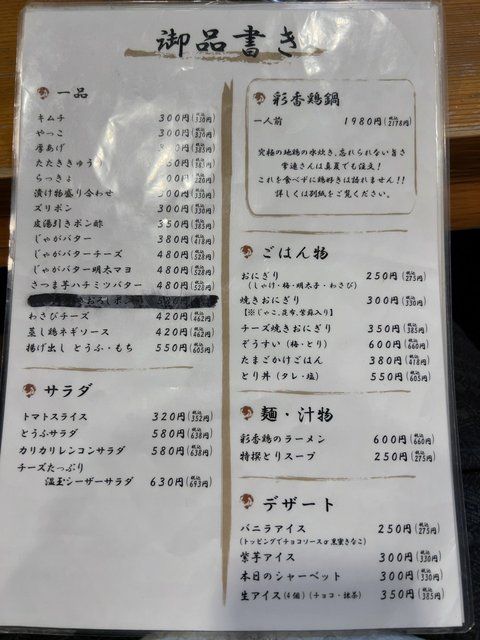 御品書き
一品
キムチ 300円(税込330円)
やっこ 300円(税込330円)
厚あげ 円(税込385円)
たたききゅうり
らっきょ 00円(税込220円)
漬け物盛り合わせ 300円(税込330円)
ズリポン 300円(税込330円)
皮湯引きポン酢 350円(税込385円)
じゃがバター 380円(税込418円)
じゃがバターチーズ 480円(税込528円)
じゃがバター明太マヨ 480円(税込528円)
さつま芋ハチミツバター 480円(税込528円)
わさびチーズ 420円(税込462円)
蒸し鶏ネギソース 420円(税込462円)
揚げ出し とうふ・もち 550円(税込605円)
サラダ
トマトスライス 320円(税込352円)
とうふサラダ 580円(税込638円)
カリカリレンコンサラダ 580円(税込638円)
チーズたっぷり
温玉シーザーサラダ 630円(税込693円)
彩香鶏鍋
一人前 1980円(税込2178円)
究極の地鶏の水炊き、忘れられない旨さ
常連さんは真夏でも注文!
これを食べずに鶏好きは語れません!!
詳しくは別紙をご覧ください。
ごはん物
おにぎり 250円(税込275円)
(しゃけ・梅・明太子・わさび)
焼きおにぎり 300円(税込330円)
【※じゃこ、昆布、紫蘇入り】
チーズ焼きおにぎり 350円(税込385円)
ぞうすい(梅・とり) 600円(税込660円)
たまごかけごはん 380円(税込418円)
とり丼(タレ・塩) 550円(税込605円)
麺・汁物
彩香鶏のラーメン 600円(税込660円)
特撰とりスープ 250円(税込275円)
デザート
バニラアイス 250円(税込275円)
(トッピングでチョコソースor黒蜜きなこ)
紫芋アイス 300円(税込330円)
本日のシャーベット 300円(税込330円)
生アイス(4個)(チョコ・抹茶) 350円(税込385円)